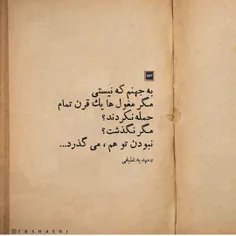 به جهنم که نیستی
مگر مغول ها یک قرن تمام
حمله نکردند؟
مگر نگذشت؟
نبودن تو هم ، می گذرد...
مهدیه لطیفی